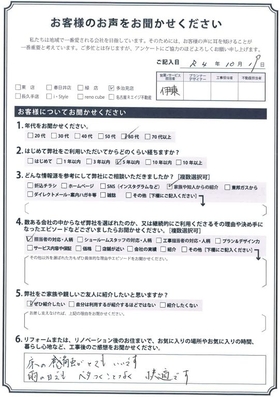 お客様のお声をお聞かせください
私たちは地域で一番愛される会社を目指しています。そのためには、お客様の声に耳を傾けることが
一番重要と考えています。
ご記入日 R4年10月9日
伊東
東店 春日井店 緑店 多治見店
長久手店 i-Style reno cube 名古屋エイジ不動産
お客様についてお聞かせください
1.年代をお聞かせください。
20代 30代 40代 50代 60代 70代以上
2.はじめて弊社をご利用いただいてからどのくらい経ちますか?
はじめて 1年以内 3年以内 5年以内 10年以内 10年以上
3.どんな情報源を参考にして弊社にご相談いただきましたか?【複数選択可】
折込チラシ ホームページ SNS(インスタグラムなど) 家族や知人からの紹介 東邦ガスから
ダイレクトメール・案内/ハガキ等 雑誌 その他(下欄にご記入ください)
4.数ある会社の中からなぜ弊社を選ばれたのか、又は継続的にご利用くださるその理由や決め手に
なったエピソードなどございましたらお聞かせください。【複数選択可】
担当者の対応・人柄 ショールームスタッフの対応・人柄 工事担当者の対応・人柄 プラン&デザイン力
サービス内容や保証 価格 店舗が近い 会社の実績 紹介 その他(下欄にご記入ください)
5.弊社をご家族や親しいご友人に紹介したいと思いますか?
ぜひ紹介したい 自分は利用するが紹介するほどではない 紹介したくない
6.リフォームまたは、リノベーション後のお住まいで、お気に入りの場所やお気に入りの時間、
暮らし心地など、工事後のご感想をお聞かせください。
床の感触がとてもいいです
雨の日でも ベタつくことなく 快適です